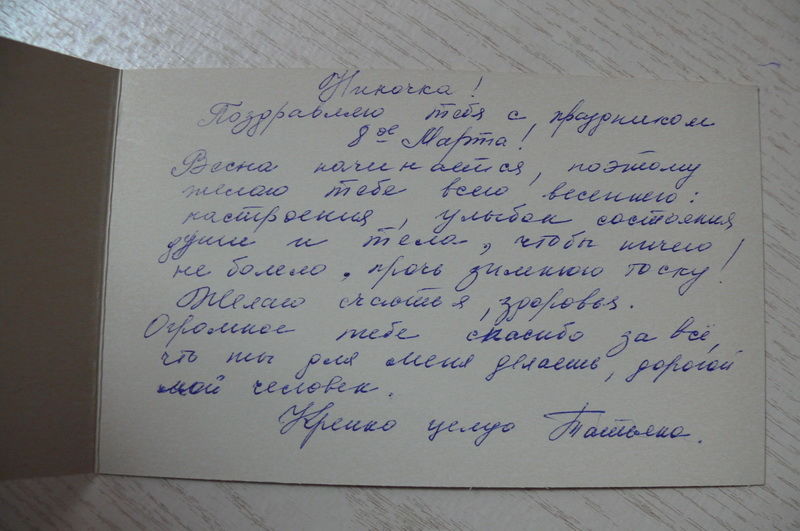 Ниночка!
Поздравляю тебя с праздником
8ое Марта!
Весна начинается, поэтому
желаю тебе всего весеннего:
настроения, улыбок состояния
души и тела, чтобы ничего
не болело, прочь зимнюю тоску!
Желаю счастья, здоровья.
Огромное тебе спасибо за всё,
что ты для меня делаешь, дорогой
мой человек.
Крепко целую Татьяна.